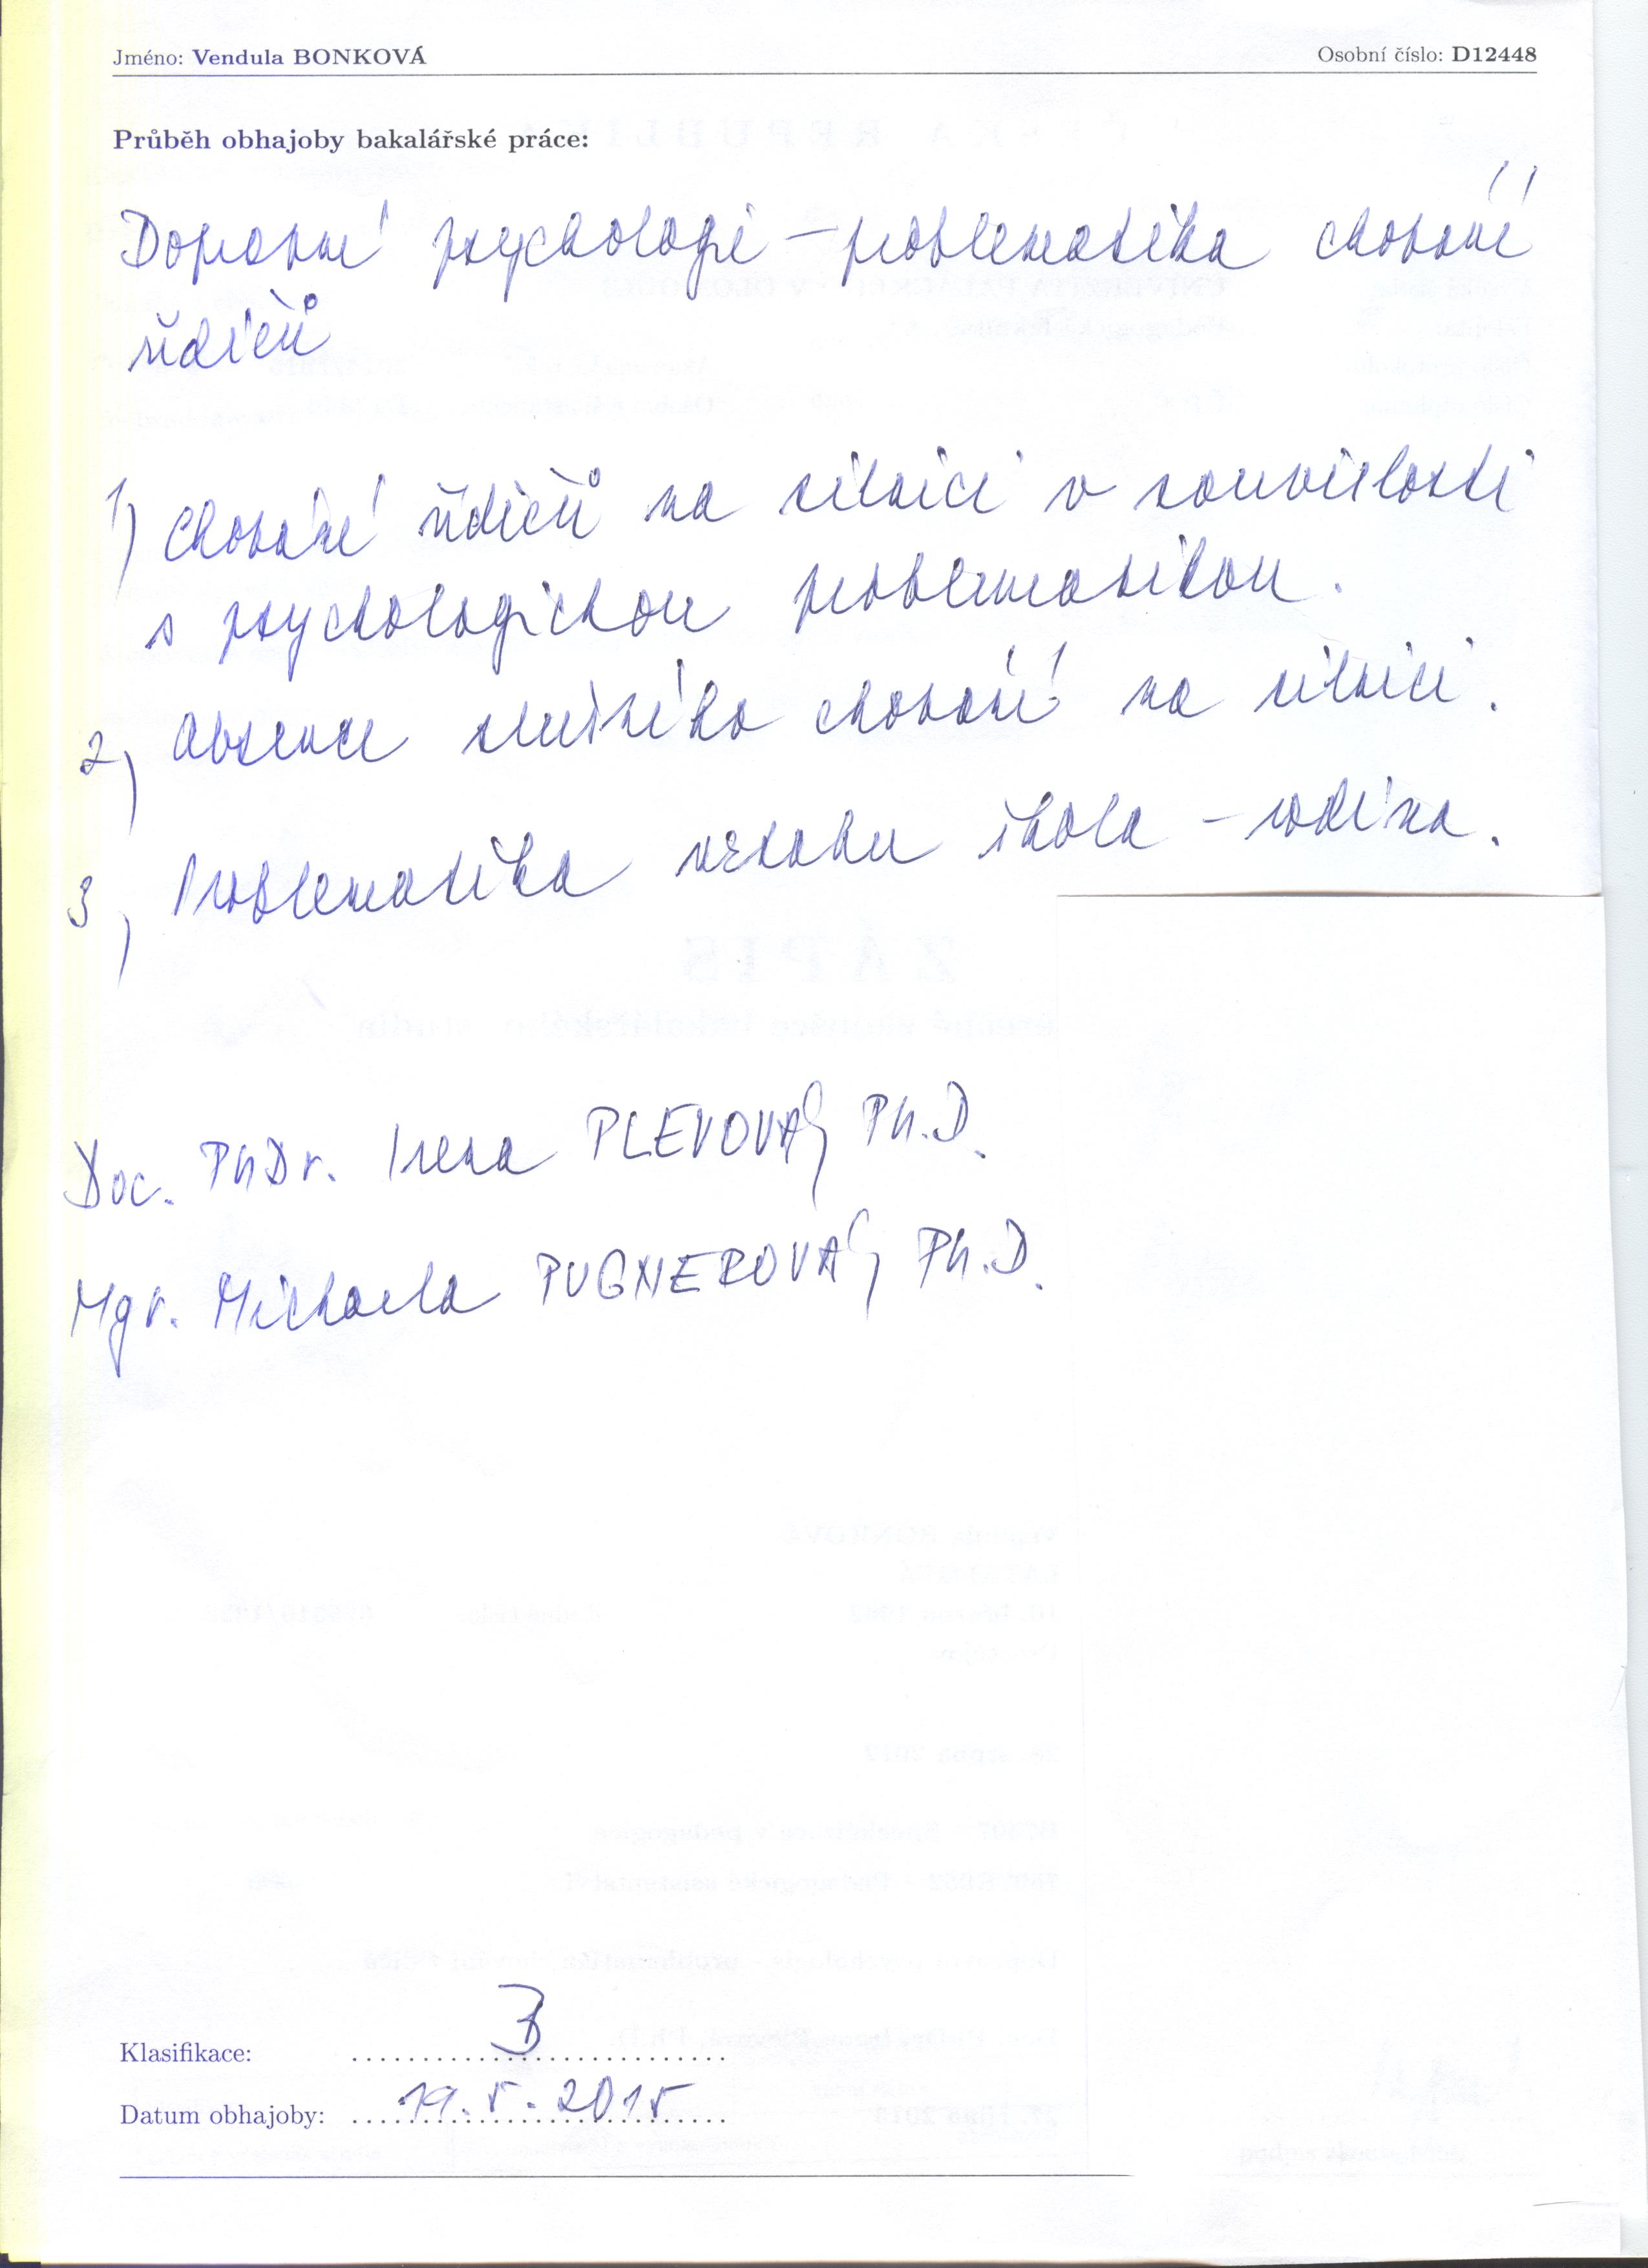 Jméno: Vendula BONKOVÁ Osobní číslo: D12448
Průběh obhajoby bakalářské práce:
Dopravní psychologie – problematika chování
řidičů
1) Chování řidičů na silnici v souvislosti
s psychologickou problematikou.
2) Absence slušného chování na silnici.
3) Problematika vztahu škola – rodina.
Doc. PhDr. Irena PLEVOVÁ, Ph.D.
Mgr. Michaela PUGNEROVÁ, Ph.D.
Klasifikace: B
Datum obhajoby: 19. 5. 2015